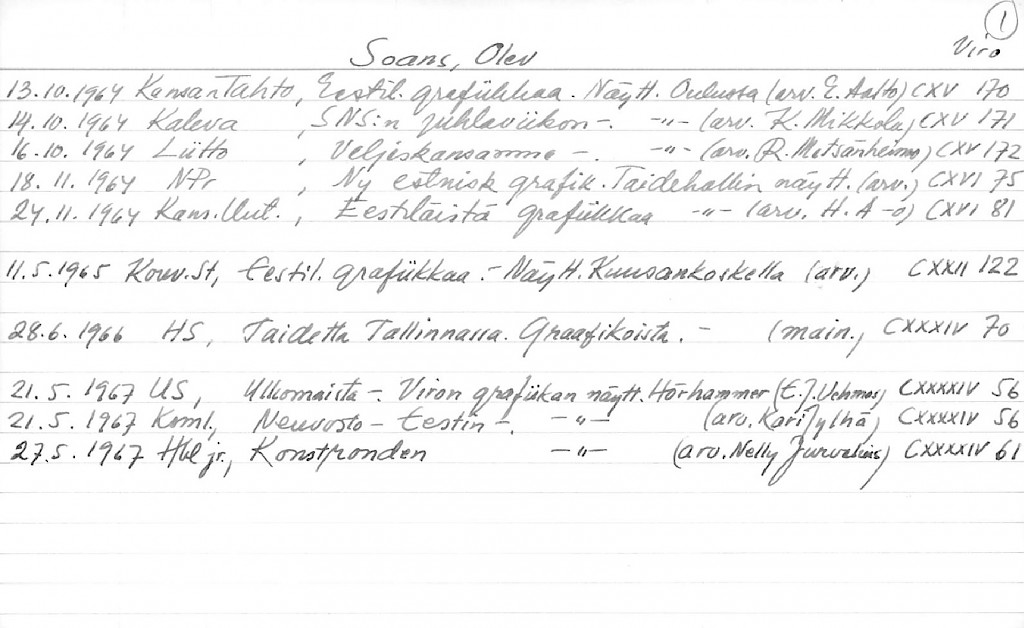 1
Viro
Soans, Olev
13.10.1964 Kansan Tahto, Eestil. grafiikkaa. Näytt. Oulussa (arv. E. Aalto) CXV 170
14.10.1964 Kaleva , SNS:n juhlaviikon -. -"- (arv. K. Mikkola) CXV 171
16.10.1964 Liitto , Veljeskansamme -. -"- (arv. R. Metsänheimo) CXV 172
18.11.1964 NPr , Ny estnisk grafik. Taidehallin näytt. (arv.) CXVI 75
24.11.1964 Kans.Uut., Eestiläistä grafiikkaa -"- (arv. H. A-o) CXVI 81
11.5.1965 Kouv.St, Eestil. grafiikkaa. - Näytt. Kuusankoskella (arv.) CXXII 122
28.6.1966 HS, Taidetta Tallinnassa. Graafikoista. - (main.) CXXXIV 70
21.5.1967 US, Ulkomaista - Viron grafiikan näytt. Hörhammer (E.J. Vehmas) CXXXXIV 56
21.5.1967 Koml., Neuvosto-Eestin -. -"- (arv. Kari Jylhä) CXXXXIV 56
27.5.1967 Hbl jr., Konstronden -"- (arv. Nelly) CXXXXIV 61